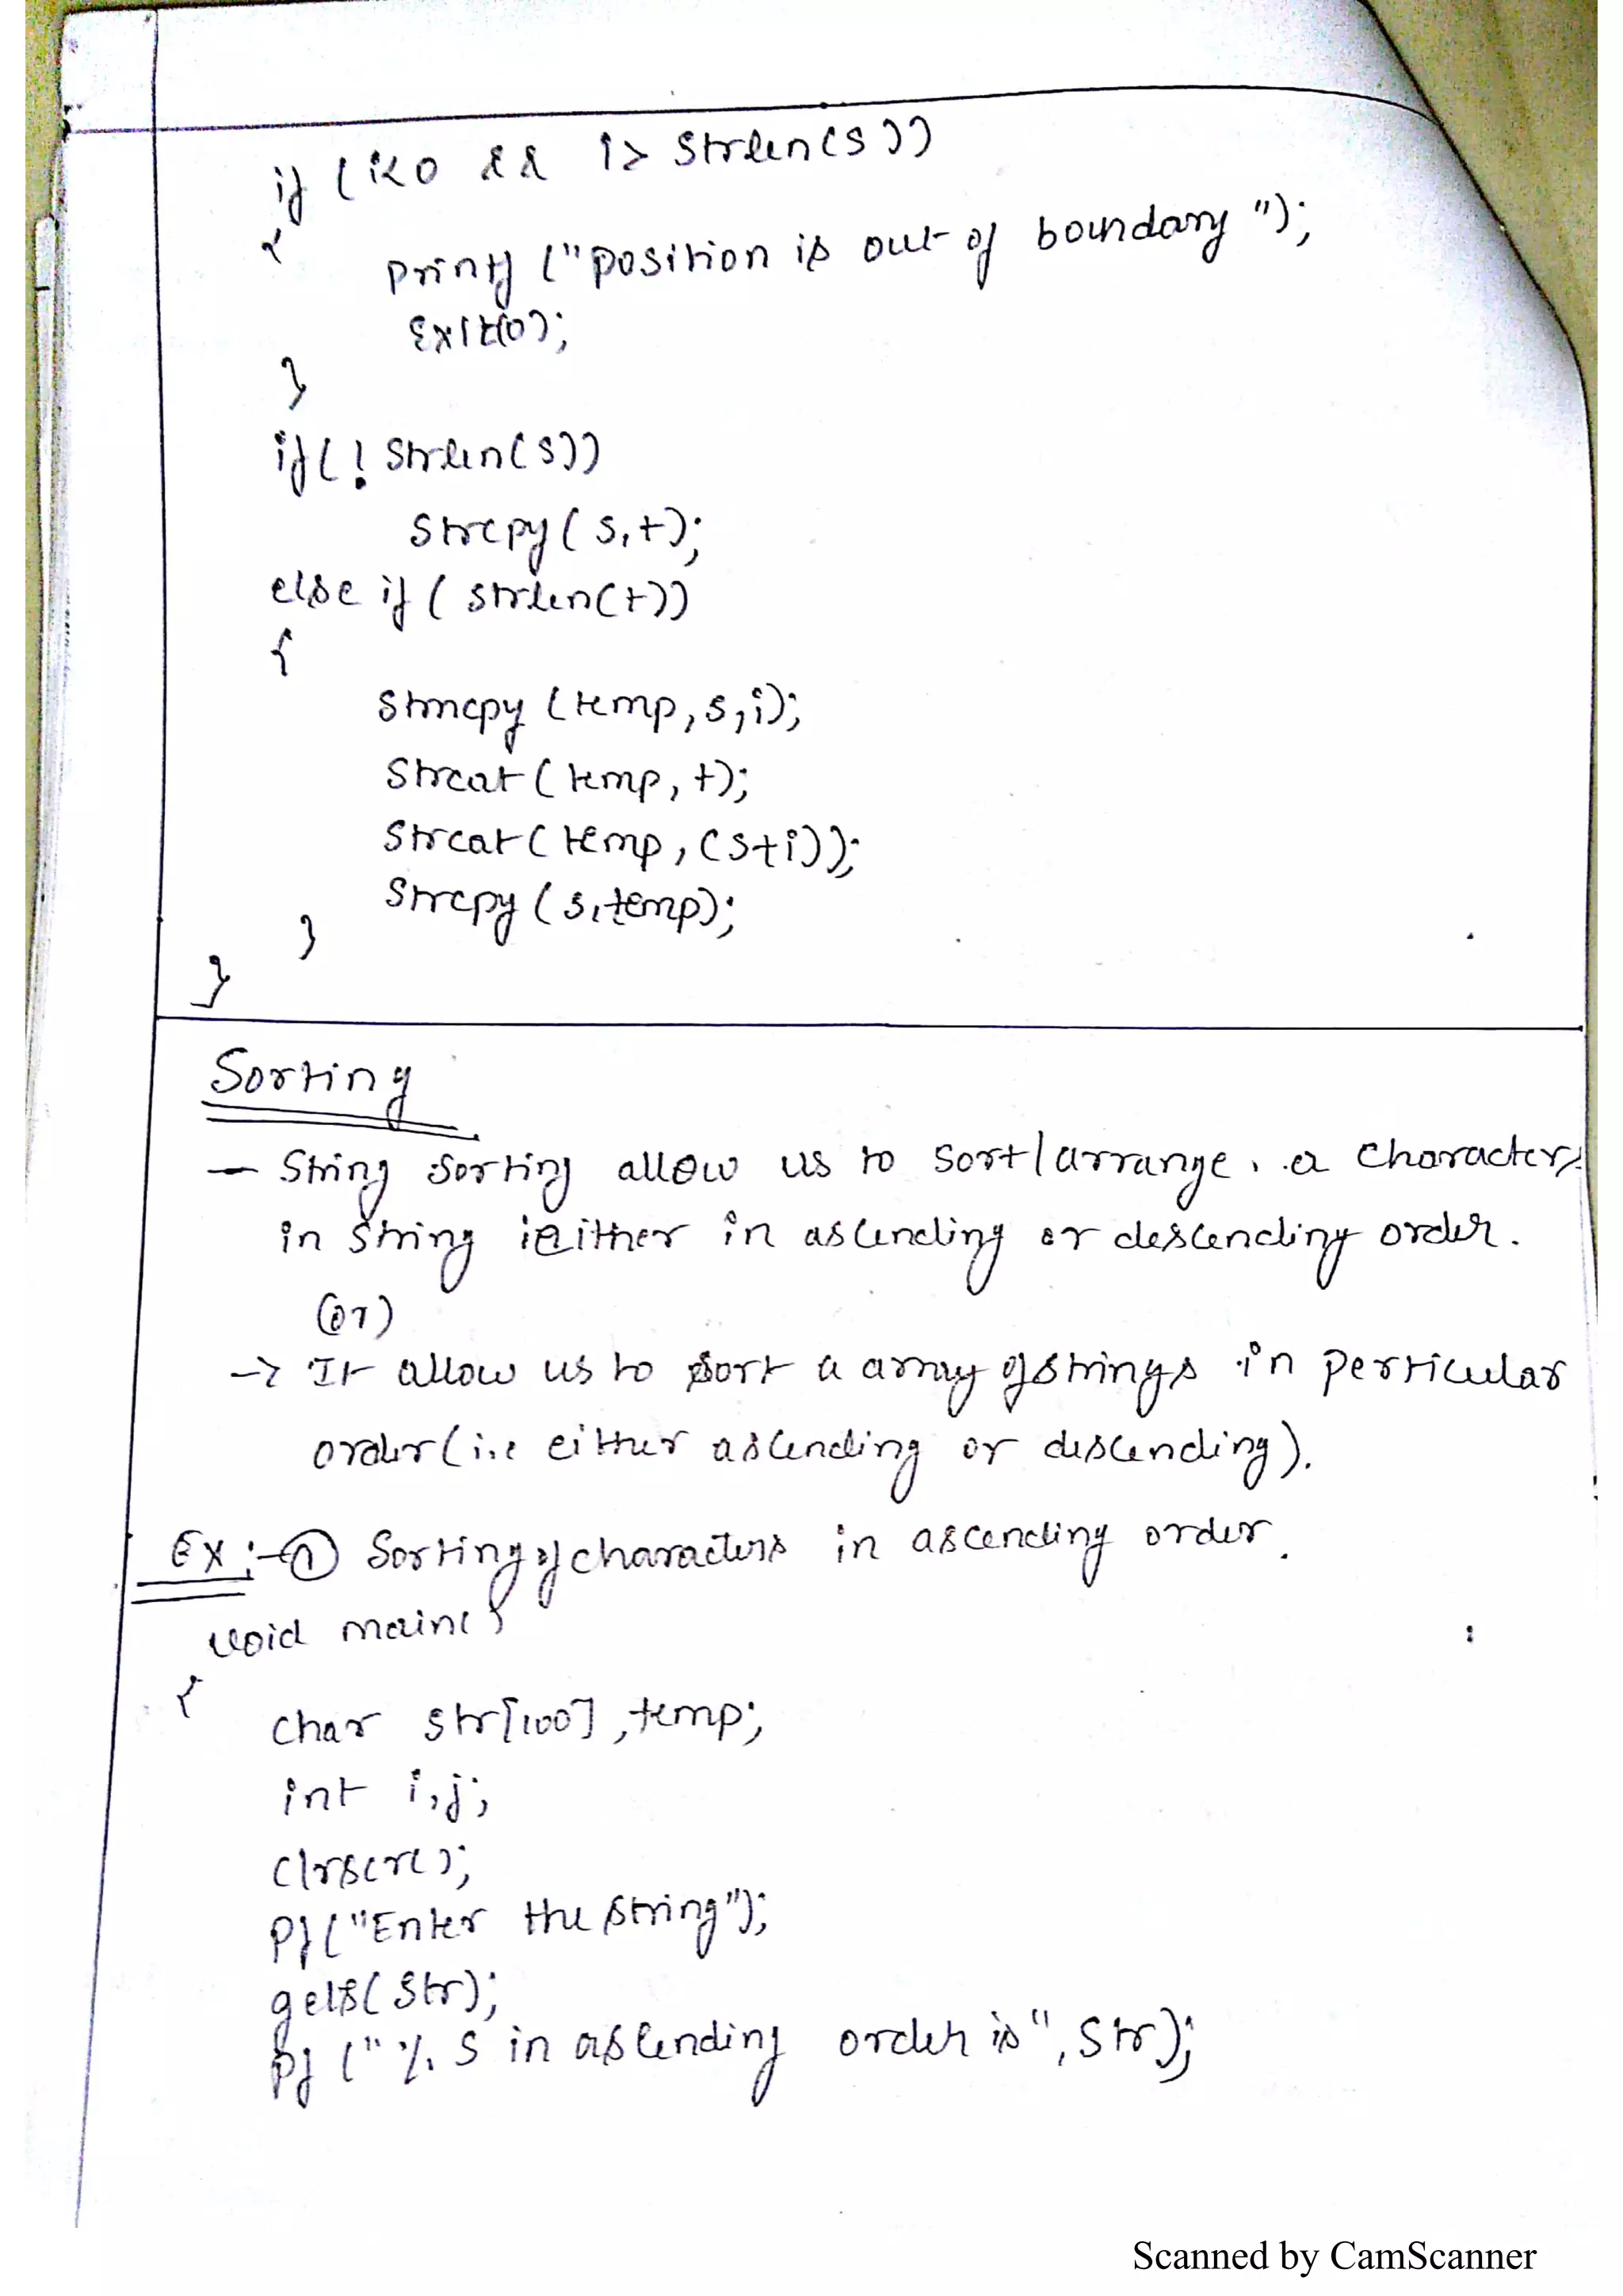 if (i<0 && i> strlen(s))
{
printf ("position is out of boundary");
Exit(0);
}
if(! strlen(s))
strcpy(s,t);
else if ( strlen(t))
{
strncpy (temp,s,i);
strcat (temp, t);
strcat (temp, (s+i));
strcpy (s,temp);
}
}
Sorting
— String sorting allow us to sort/arrange a characters
in string either in ascending or descending order.
(or)
-> It allow us to sort a array of strings in perticular
order (i.e either ascending or descending).
EX :- ① Sorting of characters in ascending order.
void main()
{
char str[100], temp;
int i,j;
clrscr();
Pf("Enter the string");
gets(str);
Pf ("%s in ascending order is", str);
Scanned by CamScanner